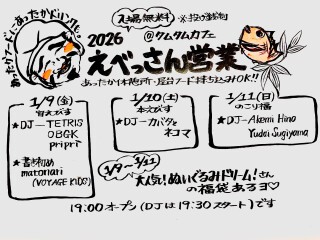 あったかフードにあったかドリンクも
入場無料 ※投げ銭制
2026
@クムクムカフェ
えべっさん営業
あったか休憩所・屋台フード持ち込みOK!!
1/9(金)
宵えびす
★DJ—TETRIS
OBGK
pripri
★書き初め
matonari
(VOYAGE KIDS)
1/10(土)
本えびす
★DJ—カバタと
ネコマ
1/11(日)
のこり福
★DJ—Akemi Hino
Yudai Sugiyama
1/9〜1/11
大人気!ぬいぐるみドリーム!さん
の福袋あるヨ♡
19:00オープン(DJは19:30スタート)です